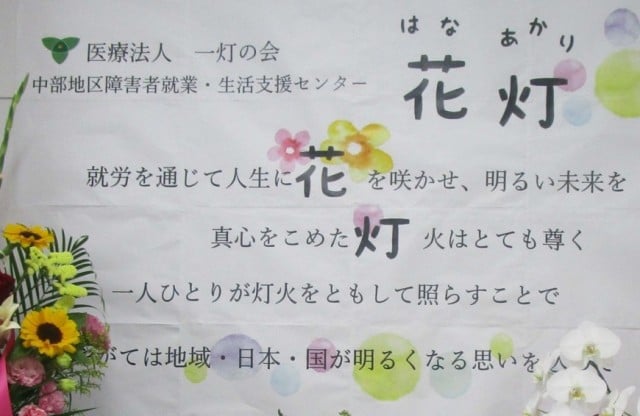 はな あかり
花灯
医療法人 一灯の会
中部地区障害者就業・生活支援センター
就労を通じて人生に花を咲かせ、明るい未来を
真心をこめた灯火はとても尊く
一人ひとりが灯火をともして照らすことで
がては地域・日本・国が明るくなる思いを